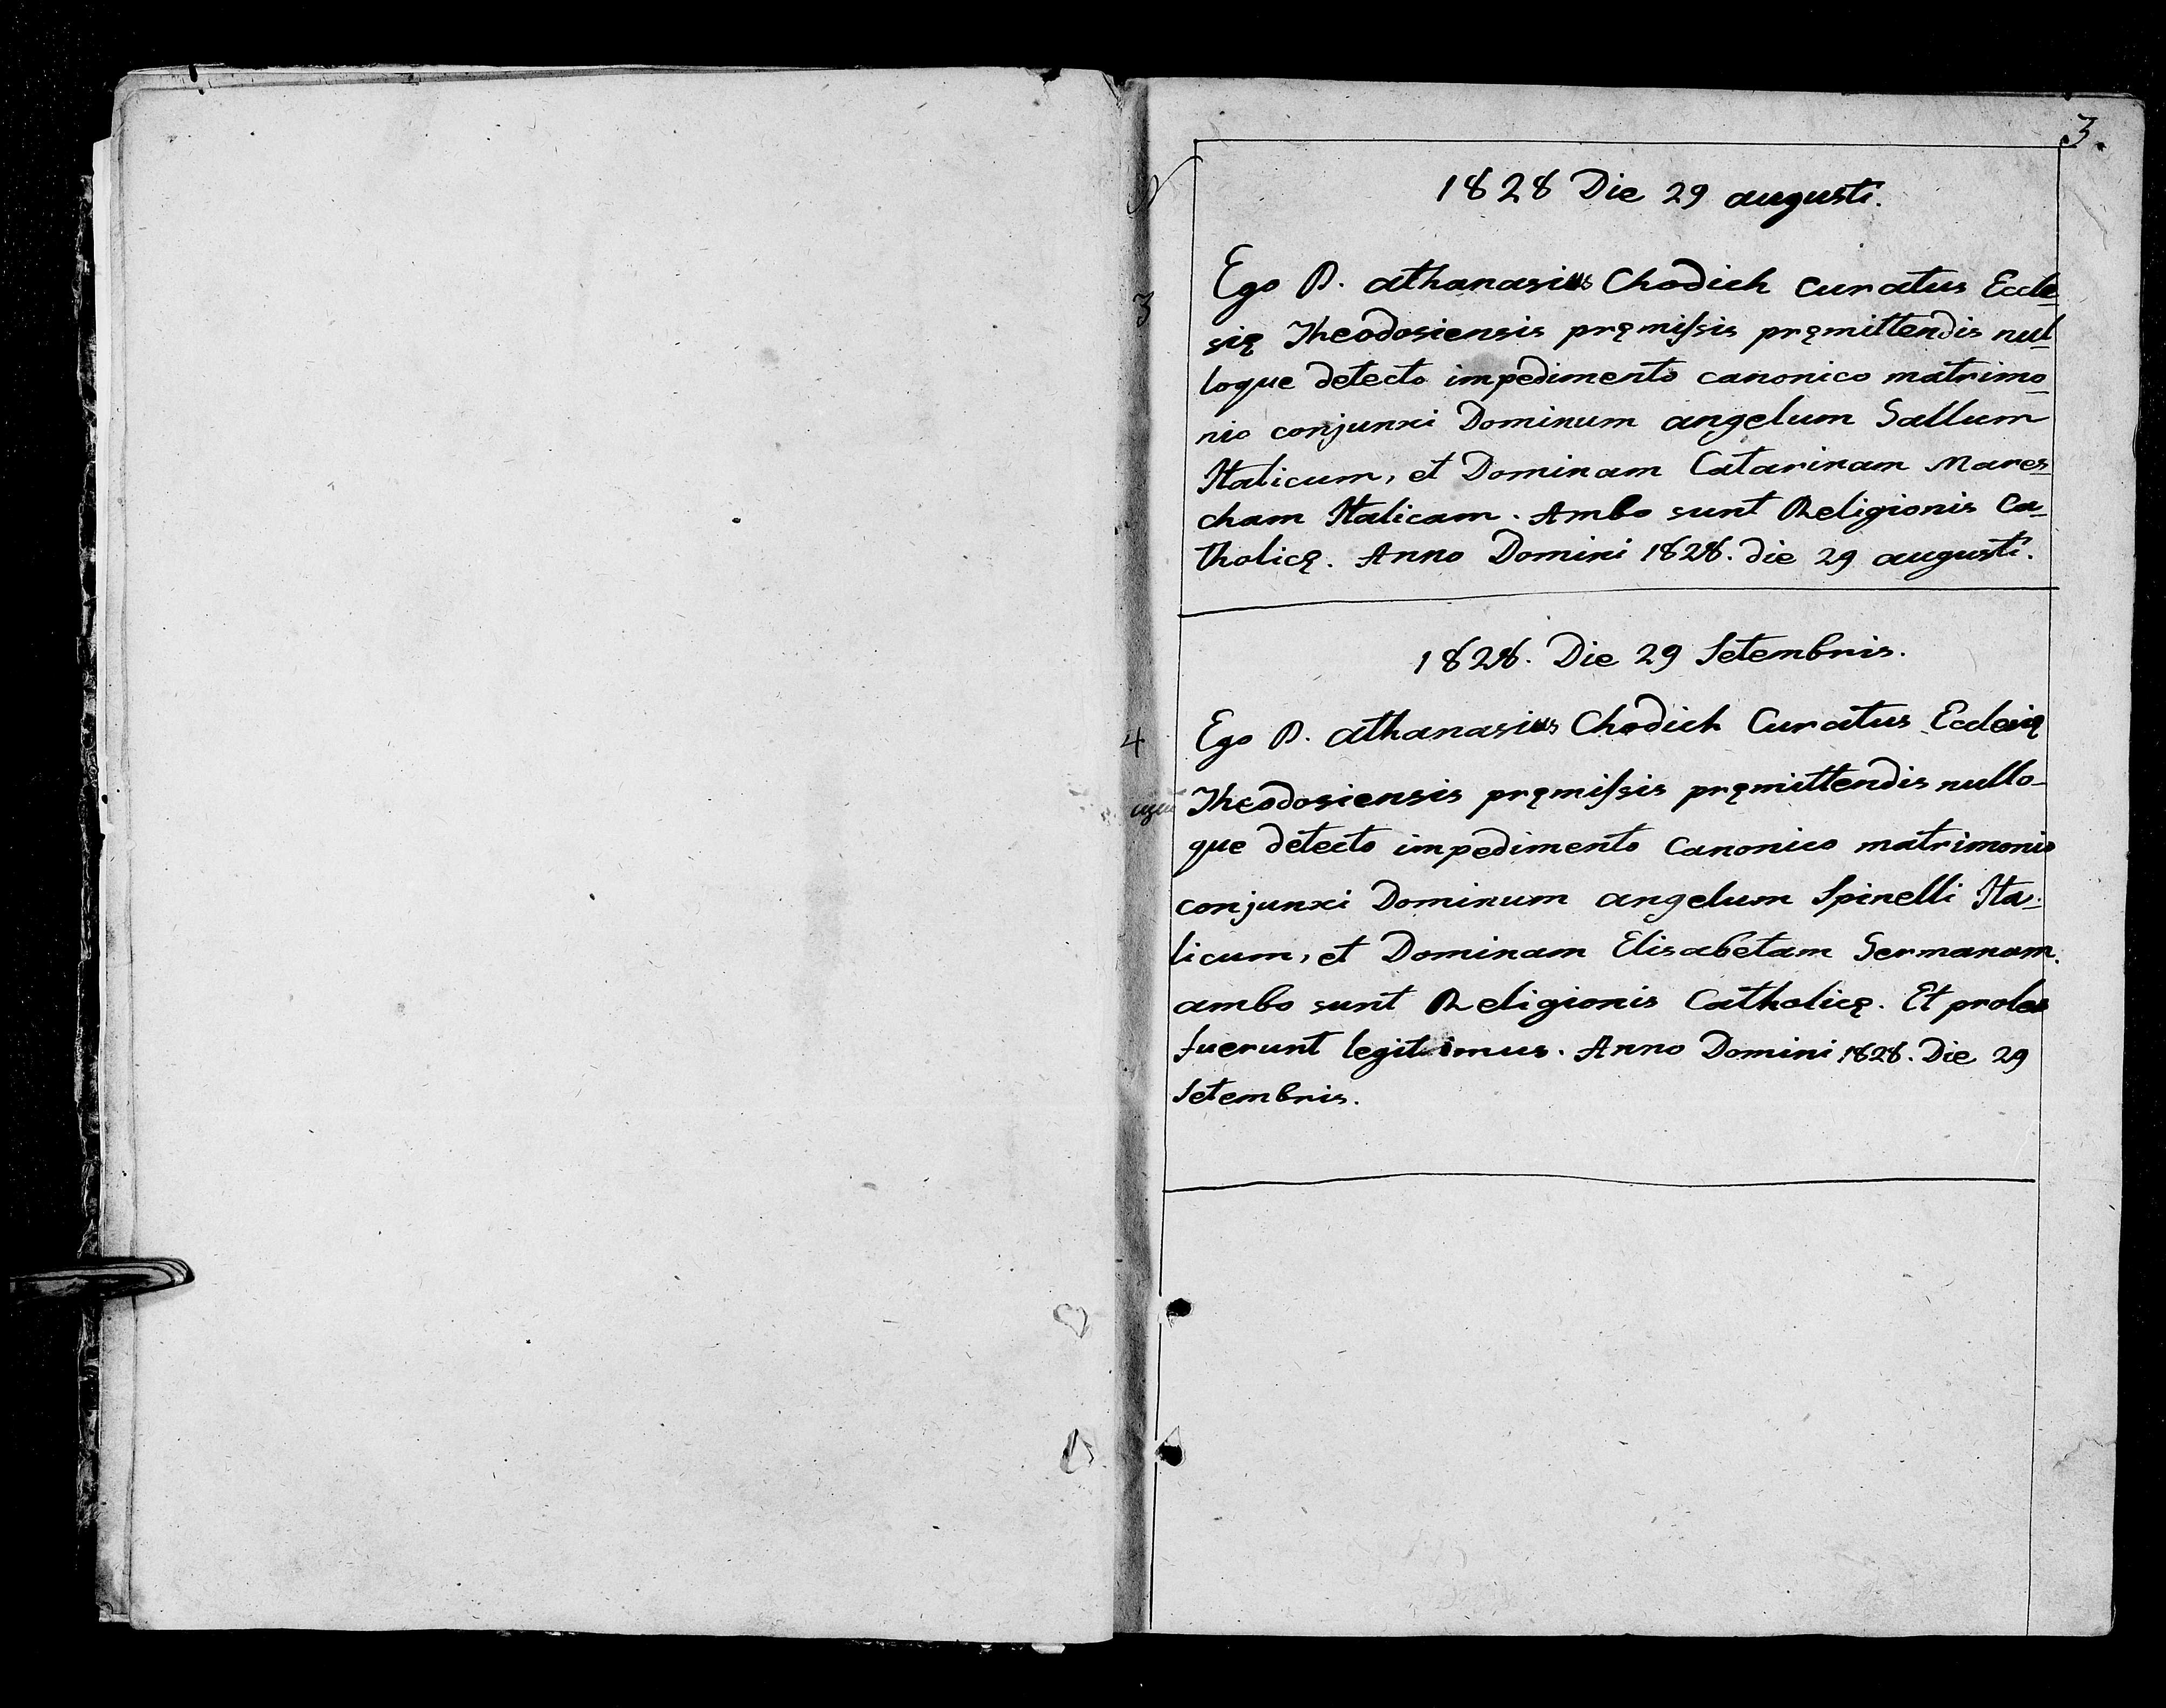 3.
1828 Die 29 augusti.
3
Ego P. athanasius Chodich Curatus Eccle-
się Theodosiensis pręmissis pręmittendis nul-
loque detecto impedimento canonico matrimo-
nio conjunxi Dominum angelum Gallum
Italicum, et Dominam Catarinam Mares-
cham Italicam. Ambo sunt Religionis Ca-
tholicę. Anno Domini 1828. die 29 augusti.
1828. Die 29 Setembris.
4
Ego P. athanasius Chodich Curatus Eccleię
Theodosiensis pręmissis pręmittendis nullo-
que detecto impedimento Canonico matrimonio
conjunxi Dominum angelum Spinelli Ita-
licum, et Dominam Elisabetam Germanam.
ambo sunt Religionis Catholicę. Et proles
fuerunt legitimus. Anno Domini 1828. Die 29
Setembris.